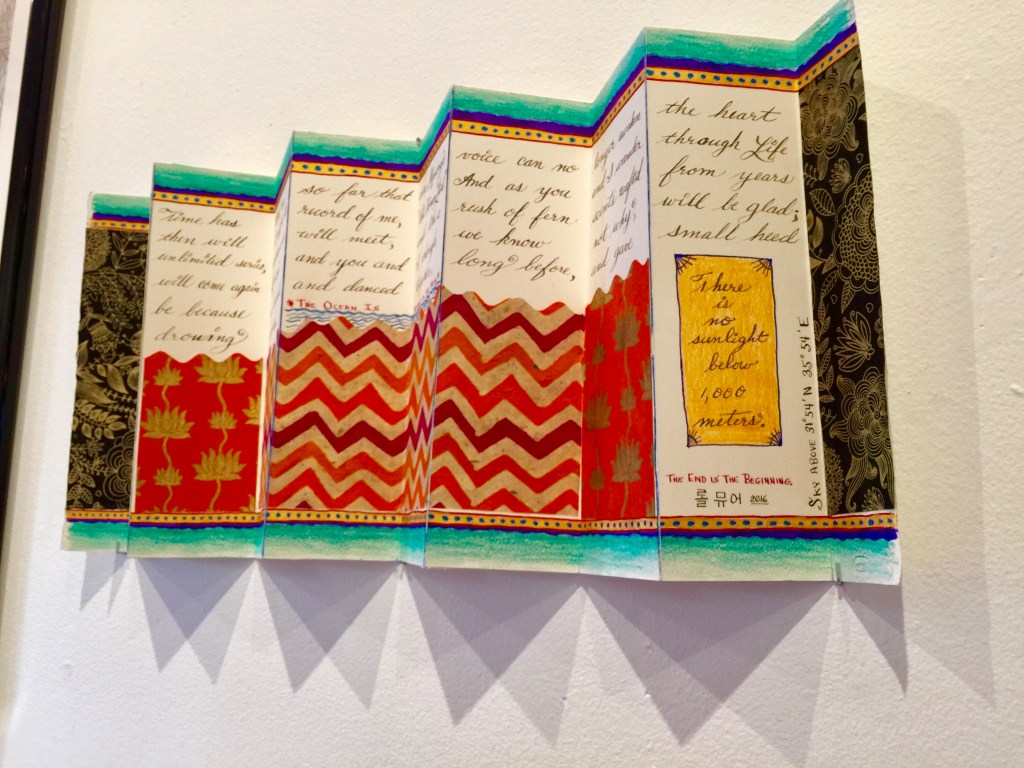 Time has
then will
unlimited series,
will come again
be because
drowing
so far that
record of me,
will meet,
and you and
and danced
THE OCEAN IS
voice can no
And as you
rush of fern
we know
long before,
and I
not why?
and gave
the heart
through Life
from years
will be glad;
small heed
There
is
no
sunlight
below
1,000
meters.
THE END IS THE BEGINNING.
롤 뮤어 2016
SKY ABOVE 31°54'N 35°54'E